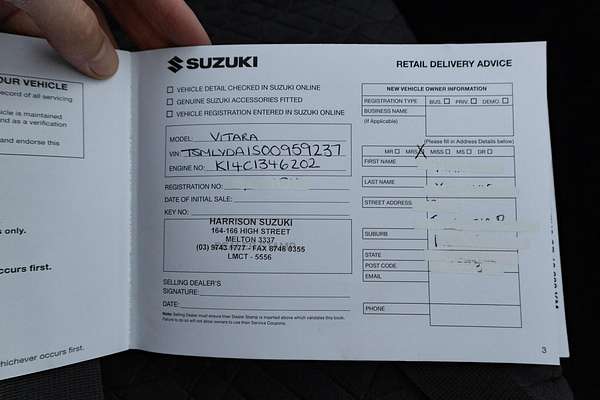 OUR VEHICLE
ecord of all servicing
hicle is maintained
nd as a verification
and endorse this
s only.
ccurs first.
hichever occurs first.
SUZUKI
RETAIL DELIVERY ADVICE
VEHICLE DETAIL CHECKED IN SUZUKI ONLINE
GENUINE SUZUKI ACCESSORIES FITTED
VEHICLE REGISTRATION ENTERED IN SUZUKI ONLINE
MODEL: VITARA
VIN: TSMLYDA1S00959237
ENGINE NO: K14C1346202
REGISTRATION NO:
DATE OF INITIAL SALE:
KEY NO:
HARRISON SUZUKI
164-166 HIGH STREET
MELTON 3337
(03) 9743 1777 - FAX 8746 0355
LMCT - 5556
SELLING DEALER'S
SIGNATURE:
DATE:
Note: Selling Dealer must ensure their Dealer Stamp is inserted above which validates this book.
Failure to do so will not allow owners to use their Service Coupons.
NEW VEHICLE OWNER INFORMATION
REGISTRATION TYPE BUS. PRIV. DEMO.
BUSINESS NAME
(If Applicable)
(Please fill in Address Details below)
MR MRS X MISS MS DR
FIRST NAME
LAST NAME
STREET ADDRESS
SUBURB
STATE
POST CODE
EMAIL
PHONE
3